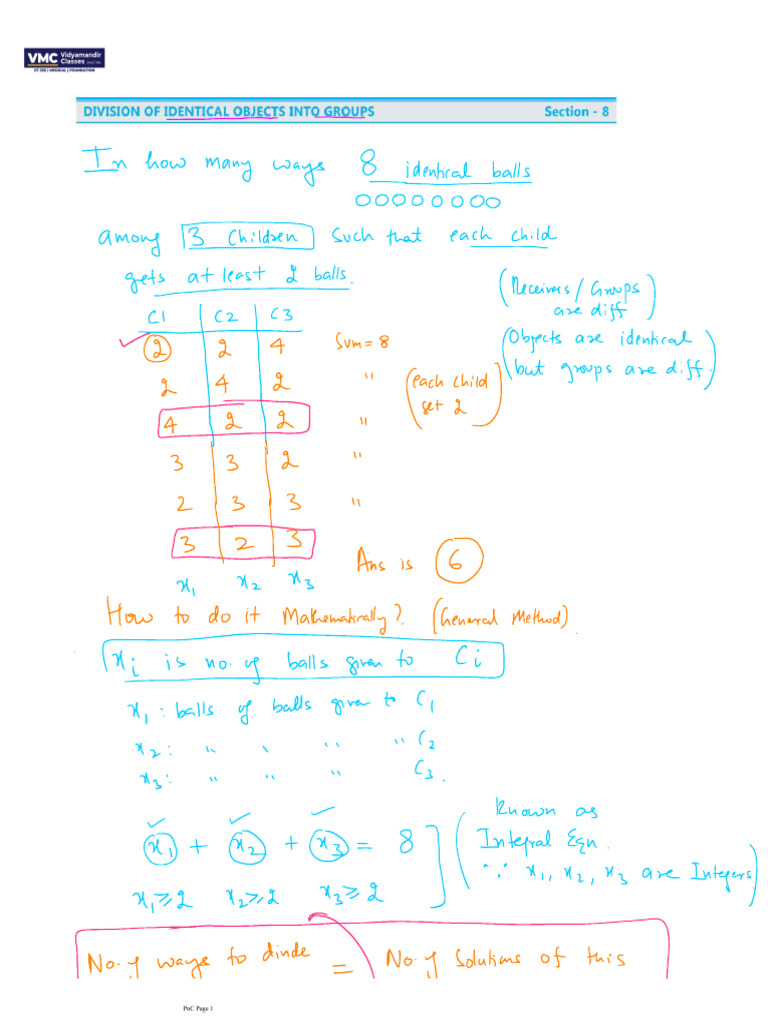 VMC Vidyamandir
Classes
IIT JEE | MEDICAL | FOUNDATION
DIVISION OF IDENTICAL OBJECTS INTO GROUPS Section - 8
In how many ways 8 identical balls
among 3 Children such that each child
gets at least 2 balls.
(Receivers / Groups
are diff)
C1 C2 C3
(Objects are identical
but groups are diff.)
2 2 4 Sum = 8
2 4 2 "
(each child
get 2)
4 2 2 "
3 3 2 "
2 3 3 "
3 2 3
Ans is 6
x1 x2 x3
How to do it Mathematically? (General Method)
xi is no. of balls given to Ci
x1 : balls of balls given to C1
x2 : " " " " C2
x3 : " " " C3.
x1 + x2 + x3 = 8
x1 ≥ 2 x2 ≥ 2 x3 ≥ 2
(Known as
Integral Eqn.
∵ x1, x2, x3 are Integers)
No. of ways to divide = No. of Solutions of this
PnC Page 1